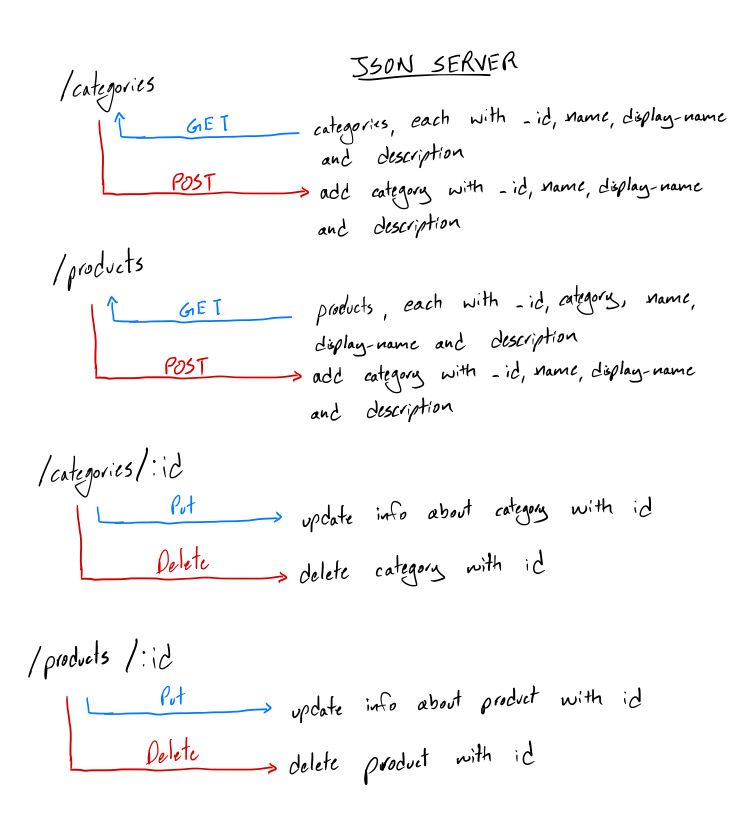 JSON SERVER
/categories
GET
categories, each with _id, name, display-name
and description
POST
add category with _id, name, display-name
and description
/products
GET
products, each with _id, category, name,
display-name and description
POST
add category with _id, name, display-name
and description
/categories/:id
Put
update info about category with id
Delete
delete category with id
/products /:id
Put
update info about product with id
Delete
delete product with id